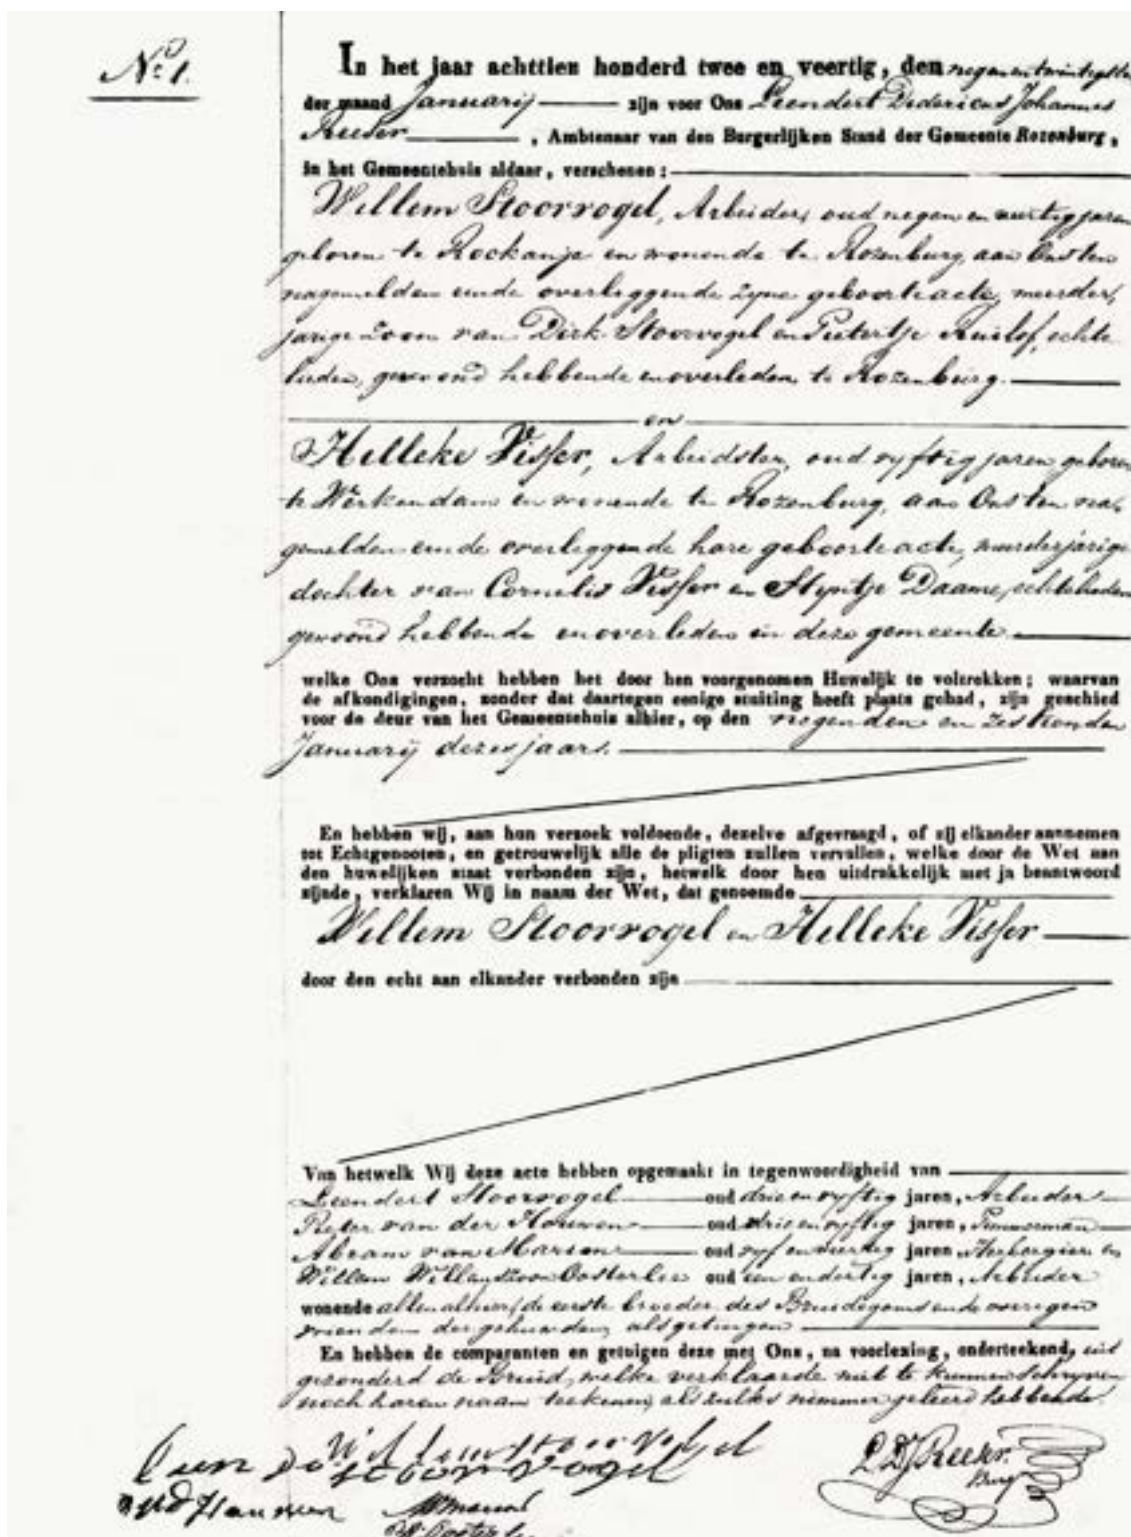 No. 1.
In het jaar achttien honderd twee en veertig, den negenentwintigste
der maand Januarij zijn voor Ons Leendert Didericus Johannes
Reeser, Ambtenaar van den Burgerlijken Stand der Gemeente Rozenburg,
in het Gemeentehuis aldaar, verschenen:
Willem Stoorvogel, Arbeider, oud negen en veertig jaren
geboren te Rockanje en wonende te Rozenburg, aan Ons ten
nagemelden einde overleggende zyne geboorteacte, meerder,
jarige zoon van Dirk Stoorvogel en Pietertje Ruilof, echte
lieden, gewoond hebbende en overleden te Rozenburg.
en
Helleke Visser, Arbeidster, oud vyftig jaren geboren
te Werkendam en wonende te Rozenburg, aan Ons ten na,
gemelden einde overleggende hare geboorte acte, meerderjarige
dochter van Cornelis Visser en Styntje Daame, echtelieden
gewoond hebbende en overleden in deze gemeente
welke Ons verzocht hebben het door hen voorgenomen Huwelijk te voltrekken; waarvan
de afkondigingen, zonder dat daartegen eenige stuiting heeft plaats gehad, zijn geschied
voor de deur van het Gemeentehuis alhier, op den negenden en zestienden
Januarij dezes jaars.
En hebben wij, aan hun verzoek voldoende, dezelve afgevraagd, of zij elkander aannemen
tot Echtgenooten, en getrouwelijk alle de pligten zullen vervullen, welke door de Wet aan
den huwelijken staat verbonden zijn, hetwelk door hen uitdrukkelijk met ja beantwoord
zijnde, verklaren Wij in naam der Wet, dat genoemde
Willem Stoorvogel en Helleke Visser
door den echt aan elkander verbonden zijn
Van hetwelk Wij deze acte hebben opgemaakt in tegenwoordigheid van
Leendert Stoorvogel oud drie en vyftig jaren, Arbeider
Pieter van der Houwen oud drie en vyftig jaren, Timmerman
Abram van Marion oud vyf en veertig jaren Herbergier en
Willem Willemszoon Oosterlee oud een en dertig jaren, Arbeider
wonende allen alhier, de eerste broeder des Bruidegoms en de overigen
vrienden der gehuwden, als getuigen
En hebben de comparanten en getuigen deze met Ons, na voorlezing, onderteekend, uit
gezonderd de Bruid, welke verklaarde niet te kunnen schryven
noch haren naam teekenen, als zulks nimmer geleerd hebbende.
Willem Stoorvogel
Leendert Stoorvogel
L D J Reeser
Burg